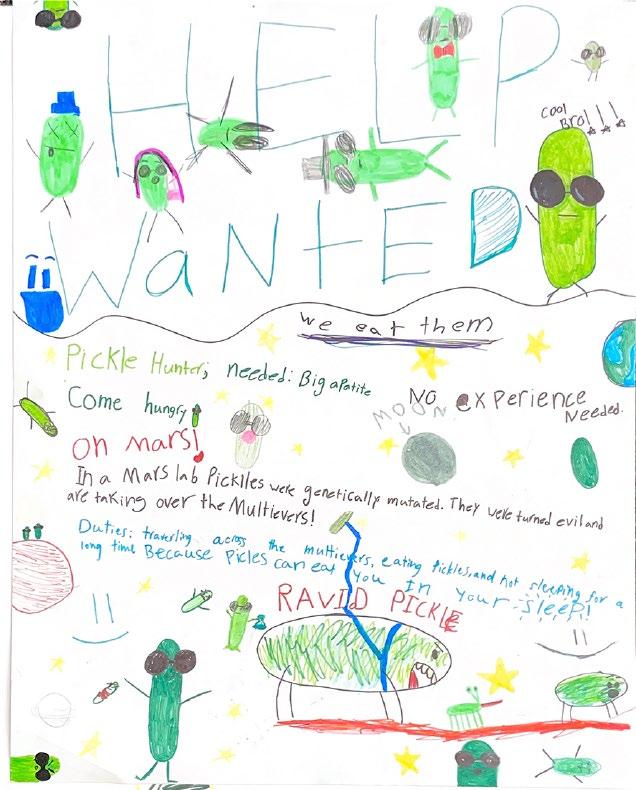 HELP
Cool
Bro!!!
WaNtED
We eat them
Pickle Hunter; needed: Big apatite
Come hungry
No experience
Needed.
MOON
On mars!
In a Mars lab Picklles were genetically mutated. They were turned evil and
are taking over the Multievers!
Duties: traverling across the multievers, eating pickles, and not sleeping for a
long time Because Picles can eat you In your sleep!
RAVID PICKLE